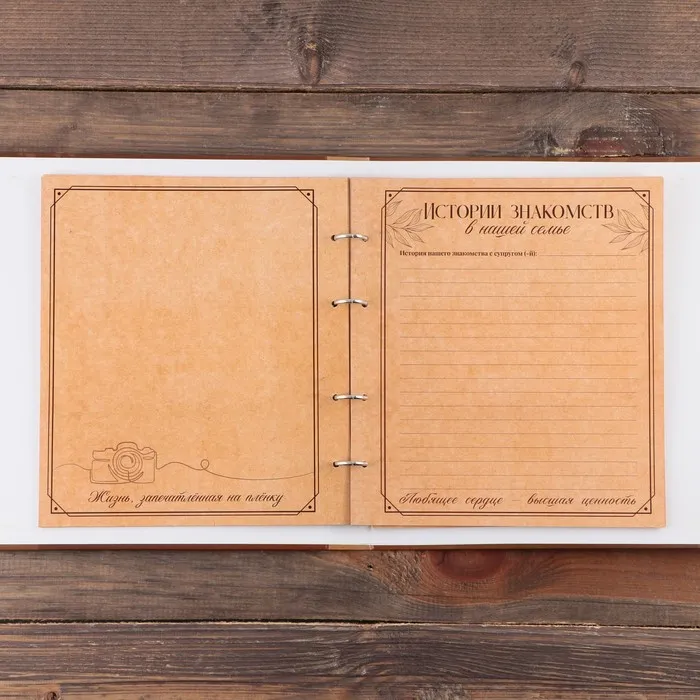 Жизнь, запечатлённая на плёнку
Истории знакомств
в нашей семье
История нашего знакомства с супругом (-й):
Любящее сердце — высшая ценность